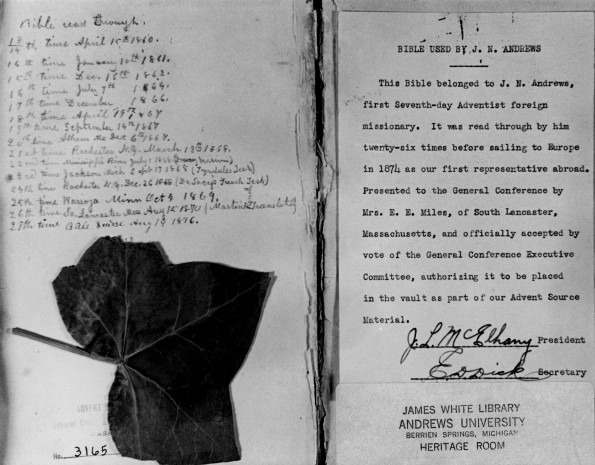 Bible read through.
13
14 th time April 15th 1860.
14th time January 10th 1861.
15th time Dec. 1862.
16th time July 9th 1864.
17th time December 1866.
18th time April 1867
19th time September 14th 1867
20th time Dec 6th 1867.
21st time Rochester N.Y. March 13th 1868.
22nd time Mississippi River July 1868
23rd time Jackson Mich Sept 17 1868
24th time Rochester N.Y. Dec. 26 1868
25th time Wasioja Minn Oct 5 1869.
26th time So. Lancaster Aug 15 1870 (Martin's Translation)
27th time Bale Suisse Aug 19 1876.
No. 3165
BIBLE USED BY J. N. ANDREWS
This Bible belonged to J. N. Andrews,
first Seventh-day Adventist foreign
missionary. It was read through by him
twenty-six times before sailing to Europe
in 1874 as our first representative abroad.
Presented to the General Conference by
Mrs. E. E. Miles, of South Lancaster,
Massachusetts, and officially accepted by
vote of the General Conference Executive
Committee, authorizing it to be placed
in the vault as part of our Advent Source
Material.
J. L. McElhany President
E. D. Dick Secretary
JAMES WHITE LIBRARY
ANDREWS UNIVERSITY
BERRIEN SPRINGS, MICHIGAN
HERITAGE ROOM